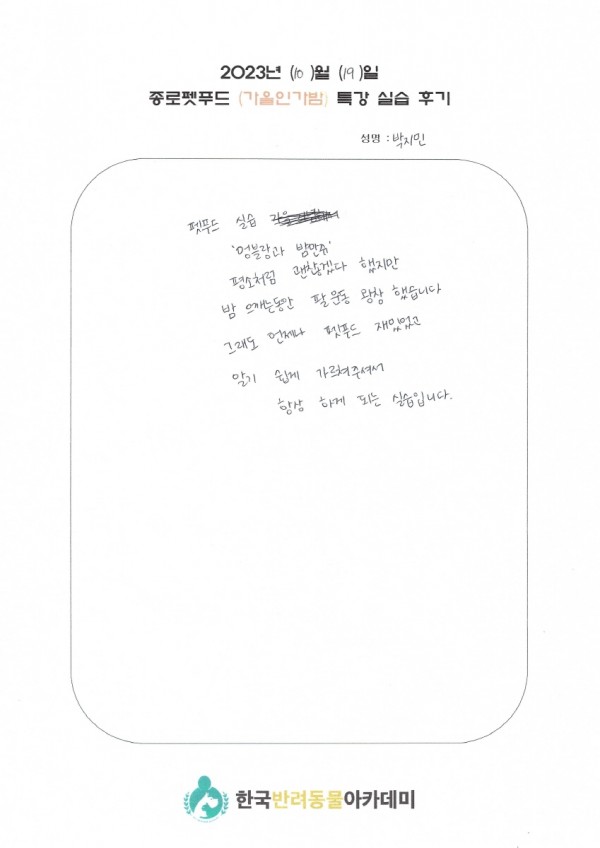 2023년 (10)월 (19)일
종로펫푸드 (가을인가밤) 특강 실습 후기
성명 : 박지민
펫푸드 실습
'멍블랑과 밤만쥬'
평소처럼 괜찮겠다 했지만
밤 으깨는동안 팔운동 왕창 했습니다
그래도 언제나 펫푸드 재밌었고
알기 쉽게 가르쳐주셔서
항상 하게 되는 실습입니다.
한국반려동물아카데미